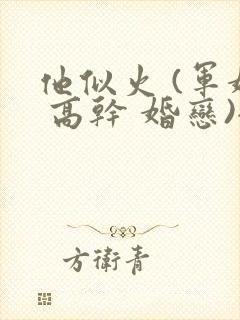 他似火 (軍
高幹 婚戀)
方衛青